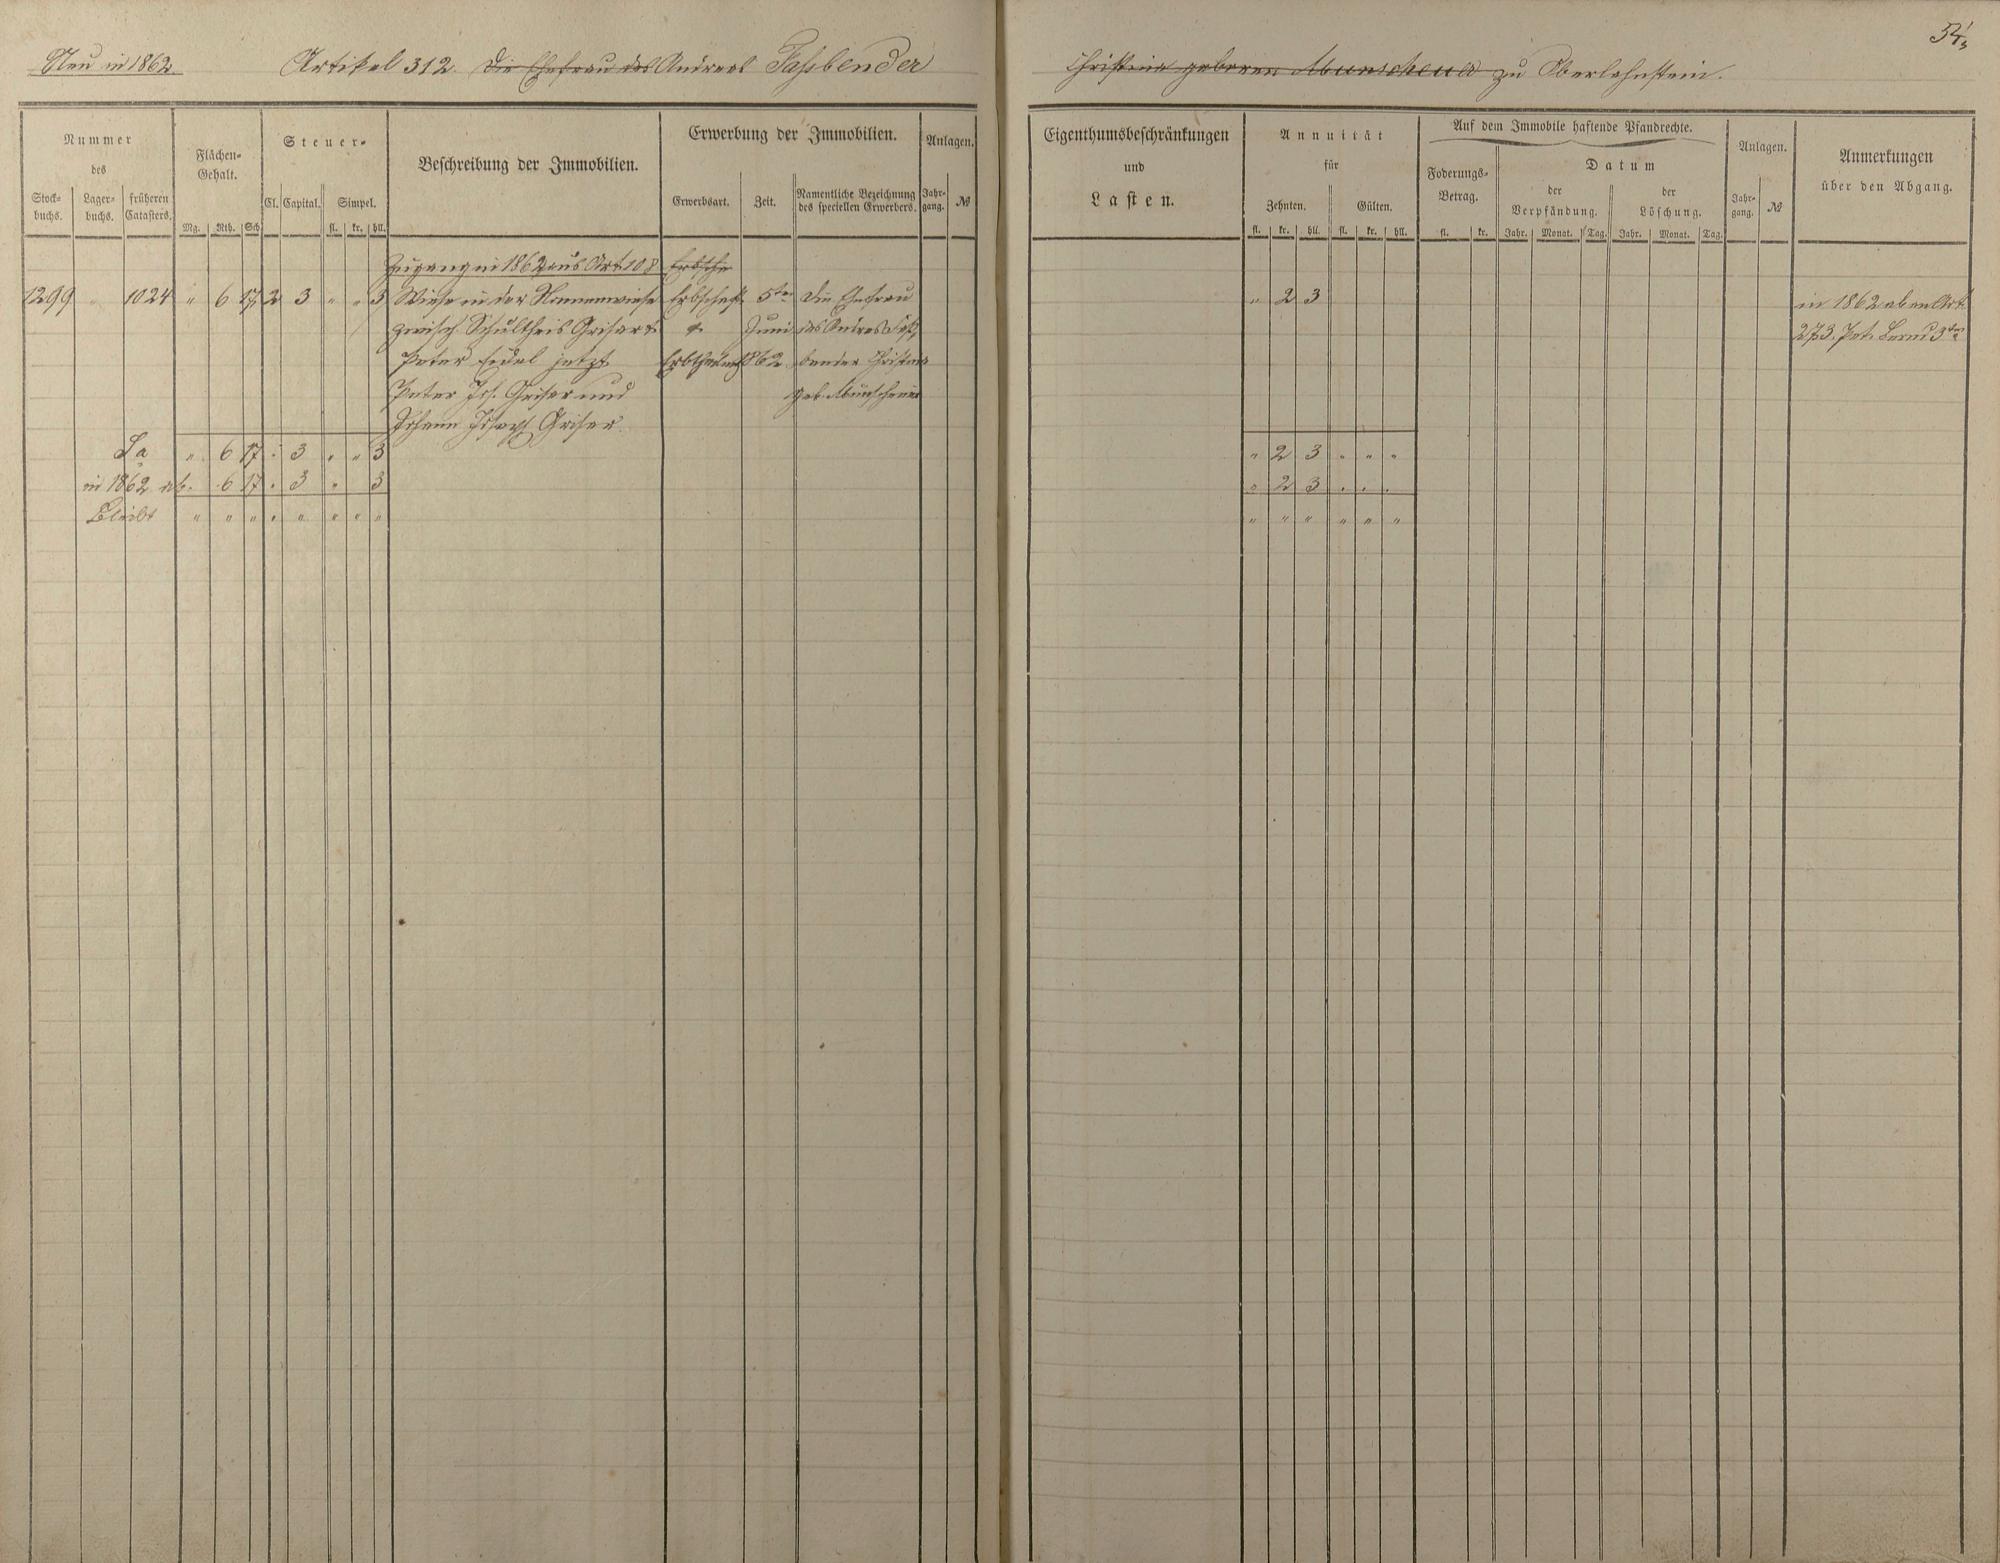 Neu in 1862. Artikel 312. Die Ehefrau des Andreas Fassbender Christina geboren Munscheuer zu Oberlahnstein.
Nummer
des
Stock-
buchs.
Lager-
buchs.
früheren
Catasters.
Flächen-
Gehalt.
Mg. Rth. Sch.
Steuer-
Cl. Capital. Simpel.
fl. kr. hll.
Beschreibung der Immobilien.
Erwerbung der Immobilien.
Erwerbsart. Zeit. Namentliche Bezeichnung
des speciellen Erwerbers.
Anlagen.
Jahr-
gang. №
Eigenthumsbeschränkungen
und
Lasten.
Annuität
für
Zehnten. Gülten.
fl. kr. hll. fl. kr. hll.
Auf dem Immobile haftende Pfandrechte.
Foderungs-
Betrag.
fl. kr.
Datum
der
Verpfändung.
der
Löschung.
Jahr. Monat. Tag. Jahr. Monat. Tag.
Anlagen.
Jahr-
gang. №
Anmerkungen
über den Abgang.
Zugang in 1862 aus Art. 108 Erbscha
1299 " 1024 " 6 17 2 3 " " 3 Wiese in der Nonnenwiese Erbschaft 5ten Die Ehefrau " 2 3 in 1862 ab an Art.
zwisch. Schultheis Juni des Andreas Fass- 273. Pet.
Peter jetzt Erbtheilung 1862 bender Christina
Peter Jos. Griser und geb. Munscheuer
Johann Joseph Griser.
Sa " 6 17 " 3 " " 3 " 2 3 " " "
in 1862 ab. 6 17 " 3 " 3 " 2 3 " " "
Bleibt " " " " " " " " " " " " " "